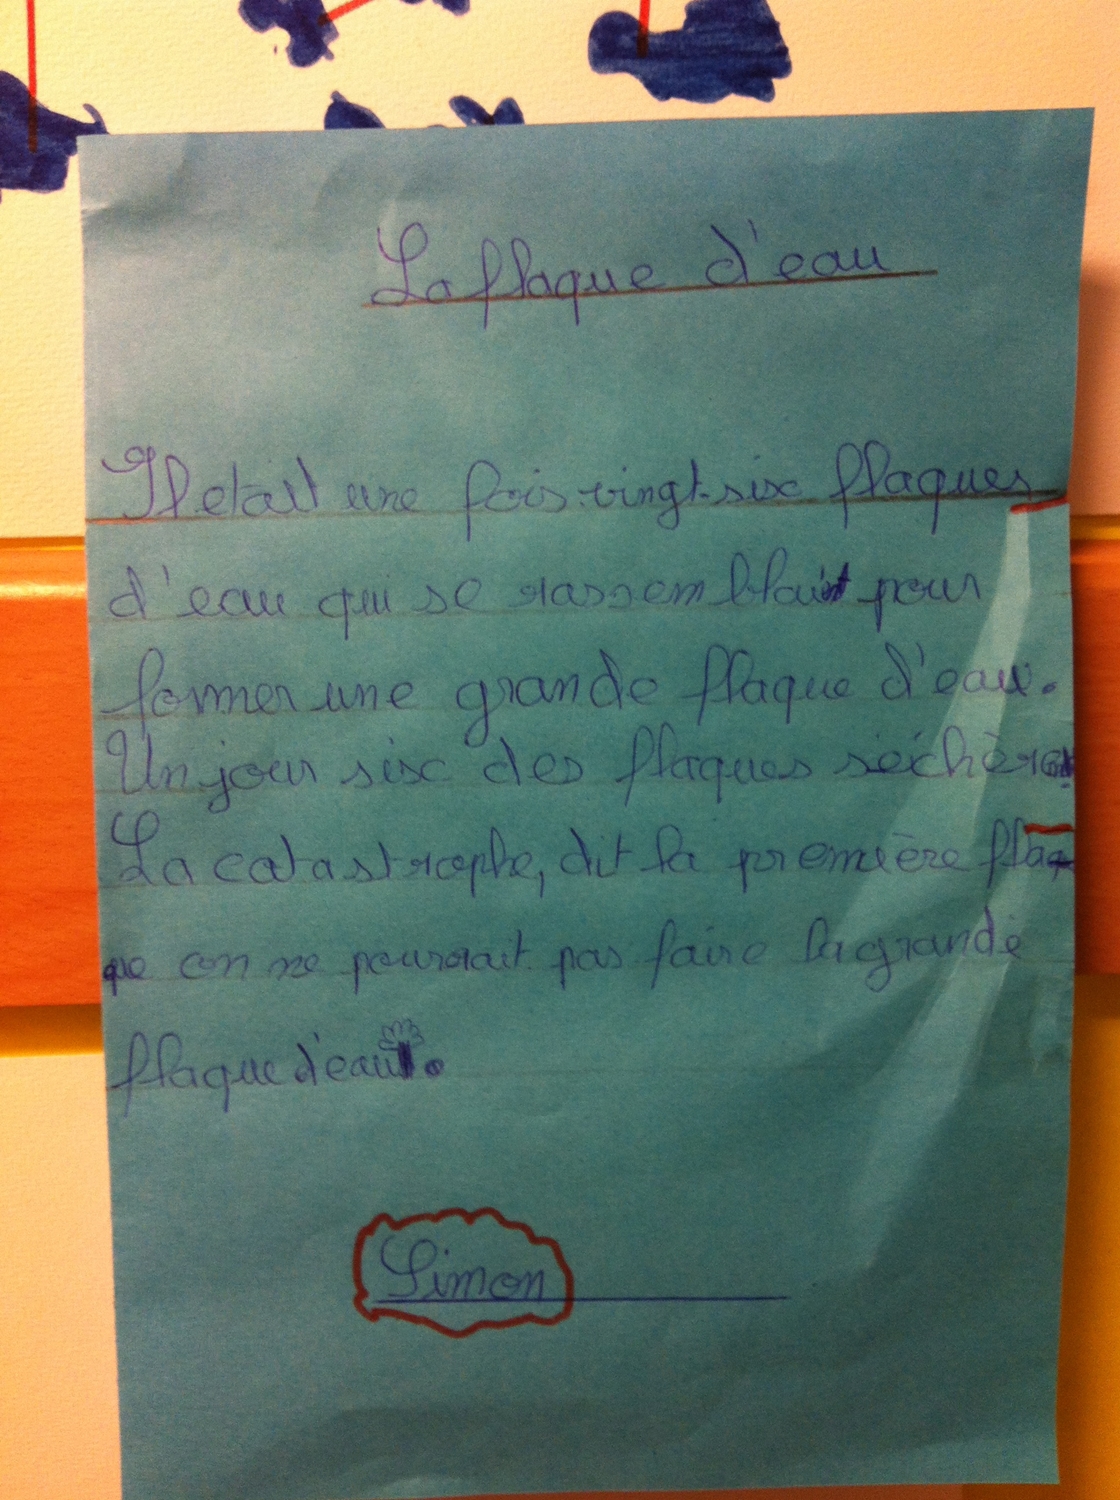 La flaque d'eau
Il etait une fois vingt-six flaques
d'eau qui se rassemblait pour
former une grande flaque d'eau.
Un jour six des flaques séchère
La catastrophe, dit la première flaq
que on ne pourrait pas faire la grande
flaque d'eau.
Simon